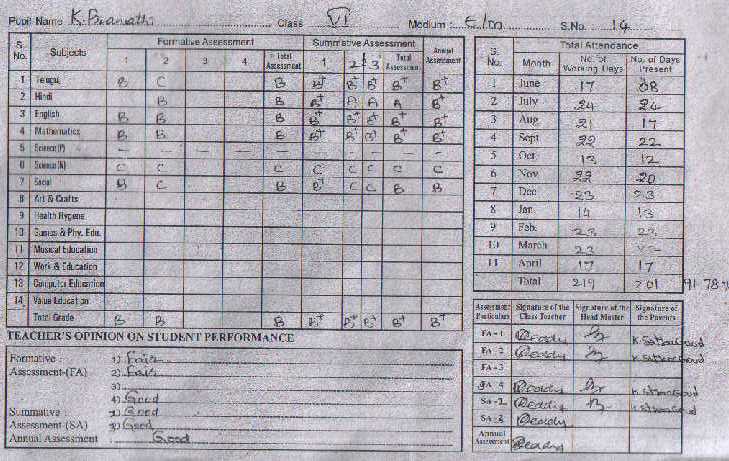 Pupil Name K. Pranathi Class VI Medium : E/M S.No. 14
S. No. Subjects Formative Assessment Summative Assessment Annual Assessment
1 2 3 4 Total Assessment 1 2 3 Total Assessment
1 Telugu B C B B+ B+ B+ B+ B+
2 Hindi B B B+ A A A B+
3 English B B B B+ B+ B+ B+ B+
4 Mathematics B B B B+ B+ B+ B+ B+
5 Science(P) — — — — — — — —
6 Science(N) C C C C C C C C
7 Social B C B B+ C C B B
8 Art & Crafts
9 Health Hygene
10 Games & Phy. Edu.
11 Musical Education
12 Work & Education
13 Computer Education
14 Value Education
Total Grade B B B B+ B+ B+ B+ B+
TEACHER'S OPINION ON STUDENT PERFORMANCE
Formative Assessment-(FA)
1) Fair
2) Fair
3)
4) Good
Summative Assessment-(SA)
1) Good
2) Good
Annual Assessment Good
S. No. Total Attendance
Month No. of Working Days No. of Days Present
1 June 17 08
2 July 24 24
3 Aug 21 17
4 Sept 22 22
5 Oct 13 12
6 Nov 22 20
7 Dec 23 23
8 Jan 14 13
9 Feb. 23 22
10 March 22
11 April 17 17
Total 219 201 91.78%
Assessment Particulars Signature of the Class Teacher Signature of the Head Master Signature of the Parents
FA - 1 Reddy
FA - 2 Reddy
FA - 3
FA 4 Reddy
SA - 1 Reddy
SA - 2 Reddy
Annual Assessment Reddy